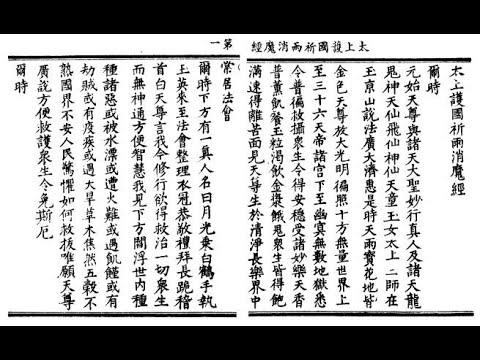 太上護國祈雨消魔經
太上護國祈雨消魔經
爾時
元始天尊與諸天大聖妙行真人及諸天龍
鬼神天仙飛仙神仙天童玉女太上二師在
玉京山說法廣大濟愚是時天雨寶花地皆
金色天尊放大光明徧照十方無量世界上
至三十六天帝諸宮下至幽冥無數地獄悉
令普徧救攝衆生令得安穩受諸妙樂天香
普薰飢餐玉粒渴飲金漿餓鬼衆生皆得飽
滿速得離苦面見天尊生於清淨長樂界中
第一
常居法會
爾時下方有一真人名曰月光乘白鶴手執
玉英來至法會整理衣冠恭敬禮拜長跪稽
首白天尊言我今修行欲得救治一切衆生
而無神通方便智慧我見下方閻浮世內種
種諸惡或被水漂或遭火難或遇飢饉或有
劫賊或有疫疾或遇大旱草木焦然五穀不
熟國界不安人民驚懼如何救拔唯願天尊
廣說方便救護衆生令免斯厄
爾時